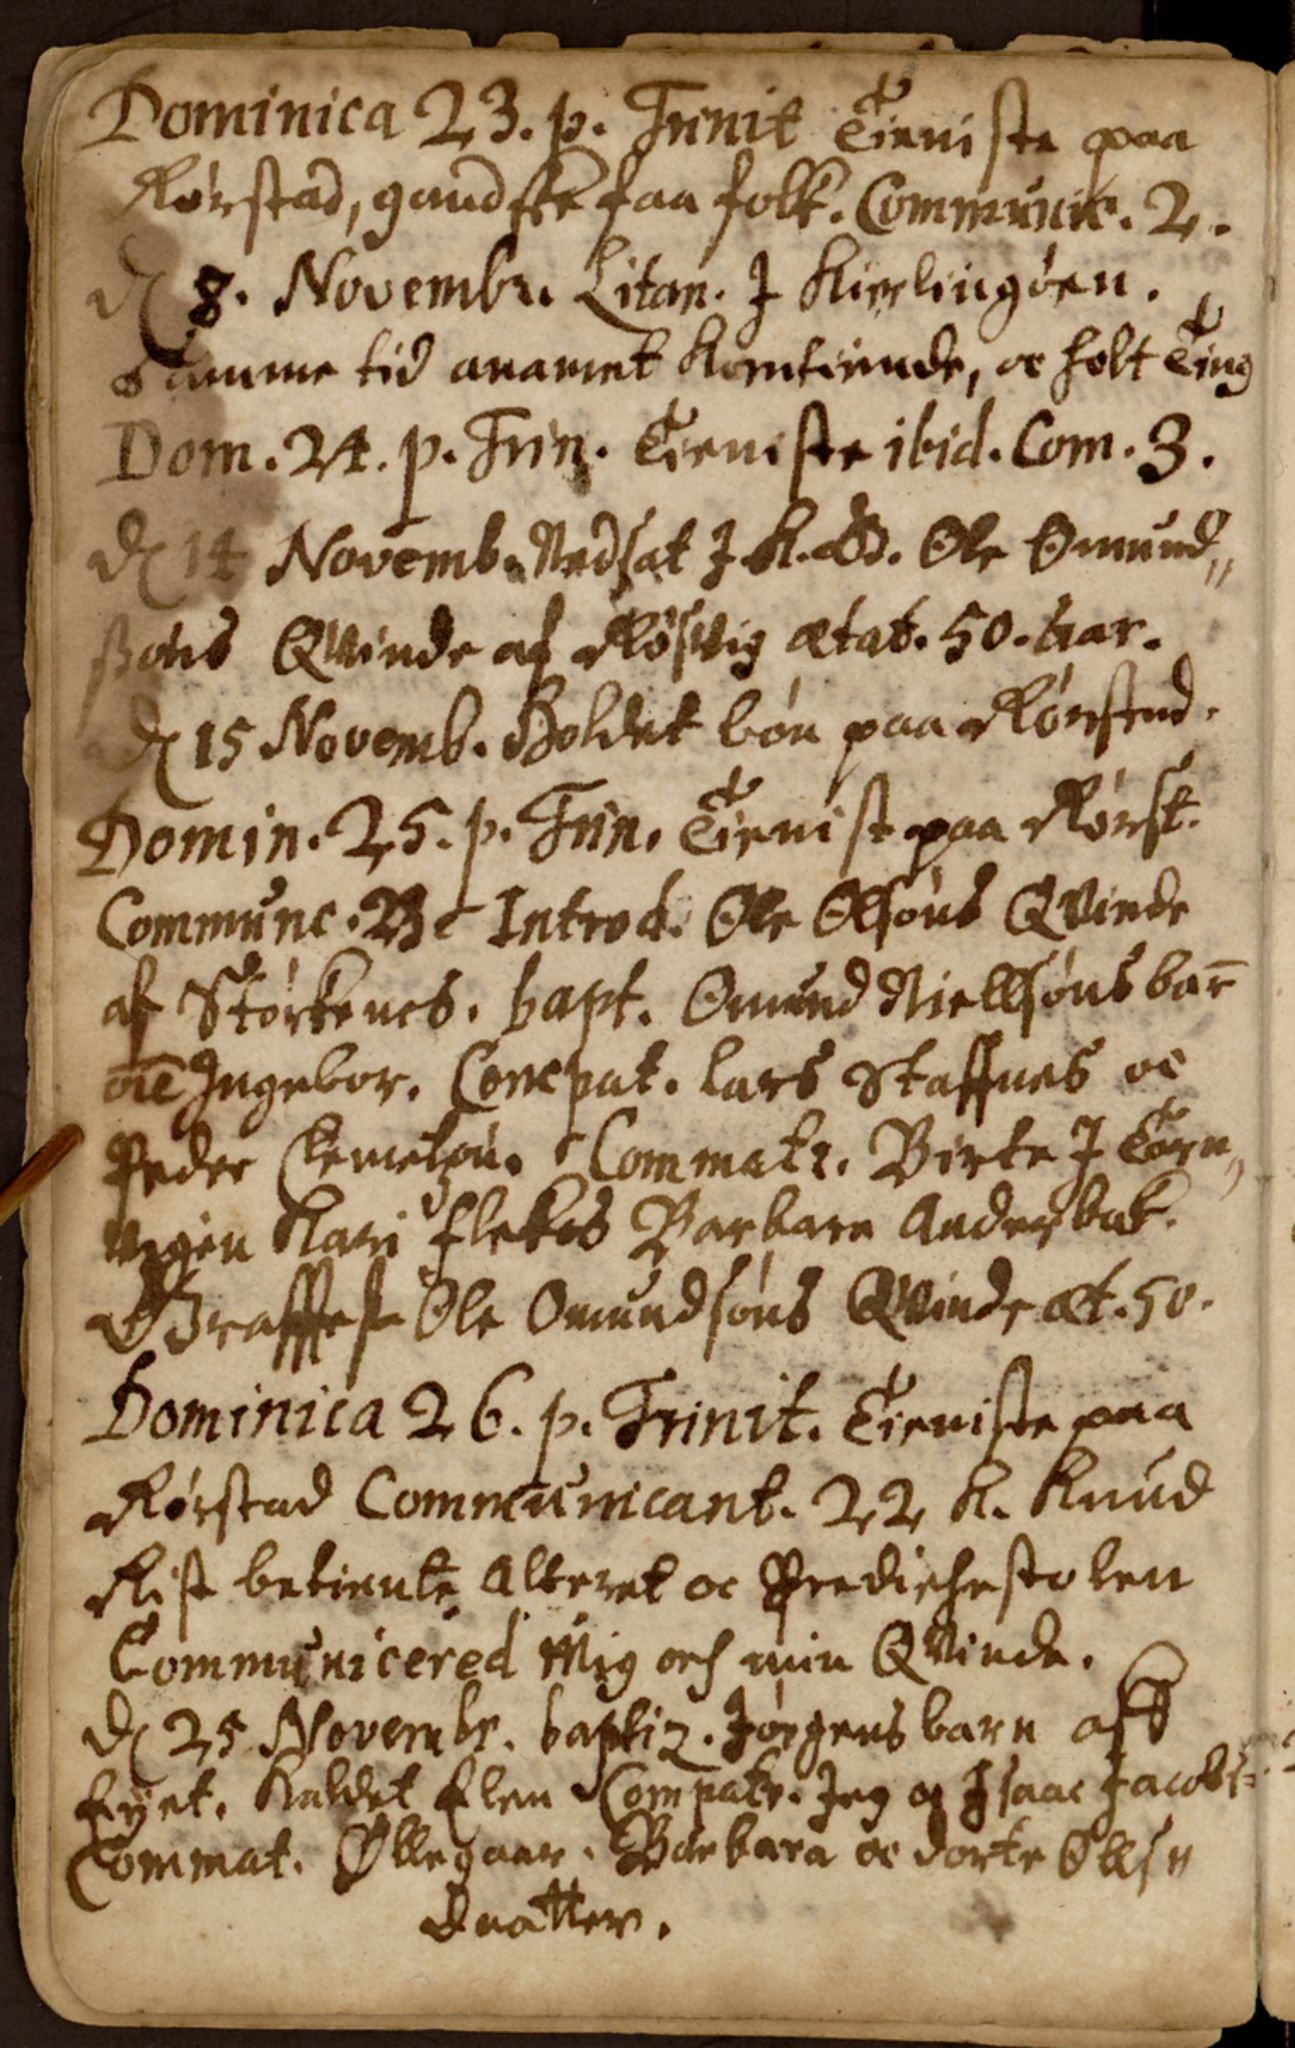 Dominica 23. p. Trinit Tieniste paa
Rørstad, gandske faa folk. Communic. 2.
d 8. Novembr. Litan. J Kierlingøen.
Samme tid anamet Korntiende, oc holt Ting
Dom. 24. p. Trin. Tieniste ibid. Com. 3.
d 14 Novemb. Nedsat J. K. G. Ole Omund„
søns Qvinde af Røsvig ætat. 50. aar.
d 15 Novemb. Holdet bøn paa Rørstad.
Domin. 25. p. Trin. Tienist paa Rørst.
Communc. Introd. Ole Olsøns Qvinde
af Størkenes. bapt. Omund Niellsøns barn̄
oīe Ingebor. Compat. Lars Staffnes oc
Peder Commatr. Birte J Torn„
Kari Flekes Barbara Andersbak.
Graffest Ole Omundsøns Qvinde æt. 50.
Dominica 26. p. Trinit. Tieniste paa
Rørstad Communicant. 22 H. Knud
Rist betiente Alteret oc Predichestolen
Communicered Mig och min Qvinde.
d 25 Novembr. baptiz. Jørgens barn aff
Eyet. Kaldet Elen Compatr. Jeg oc Isaac Jacobs=
Commat. Øllegaar. Barbara oc dorte Ollsn
Daatter.